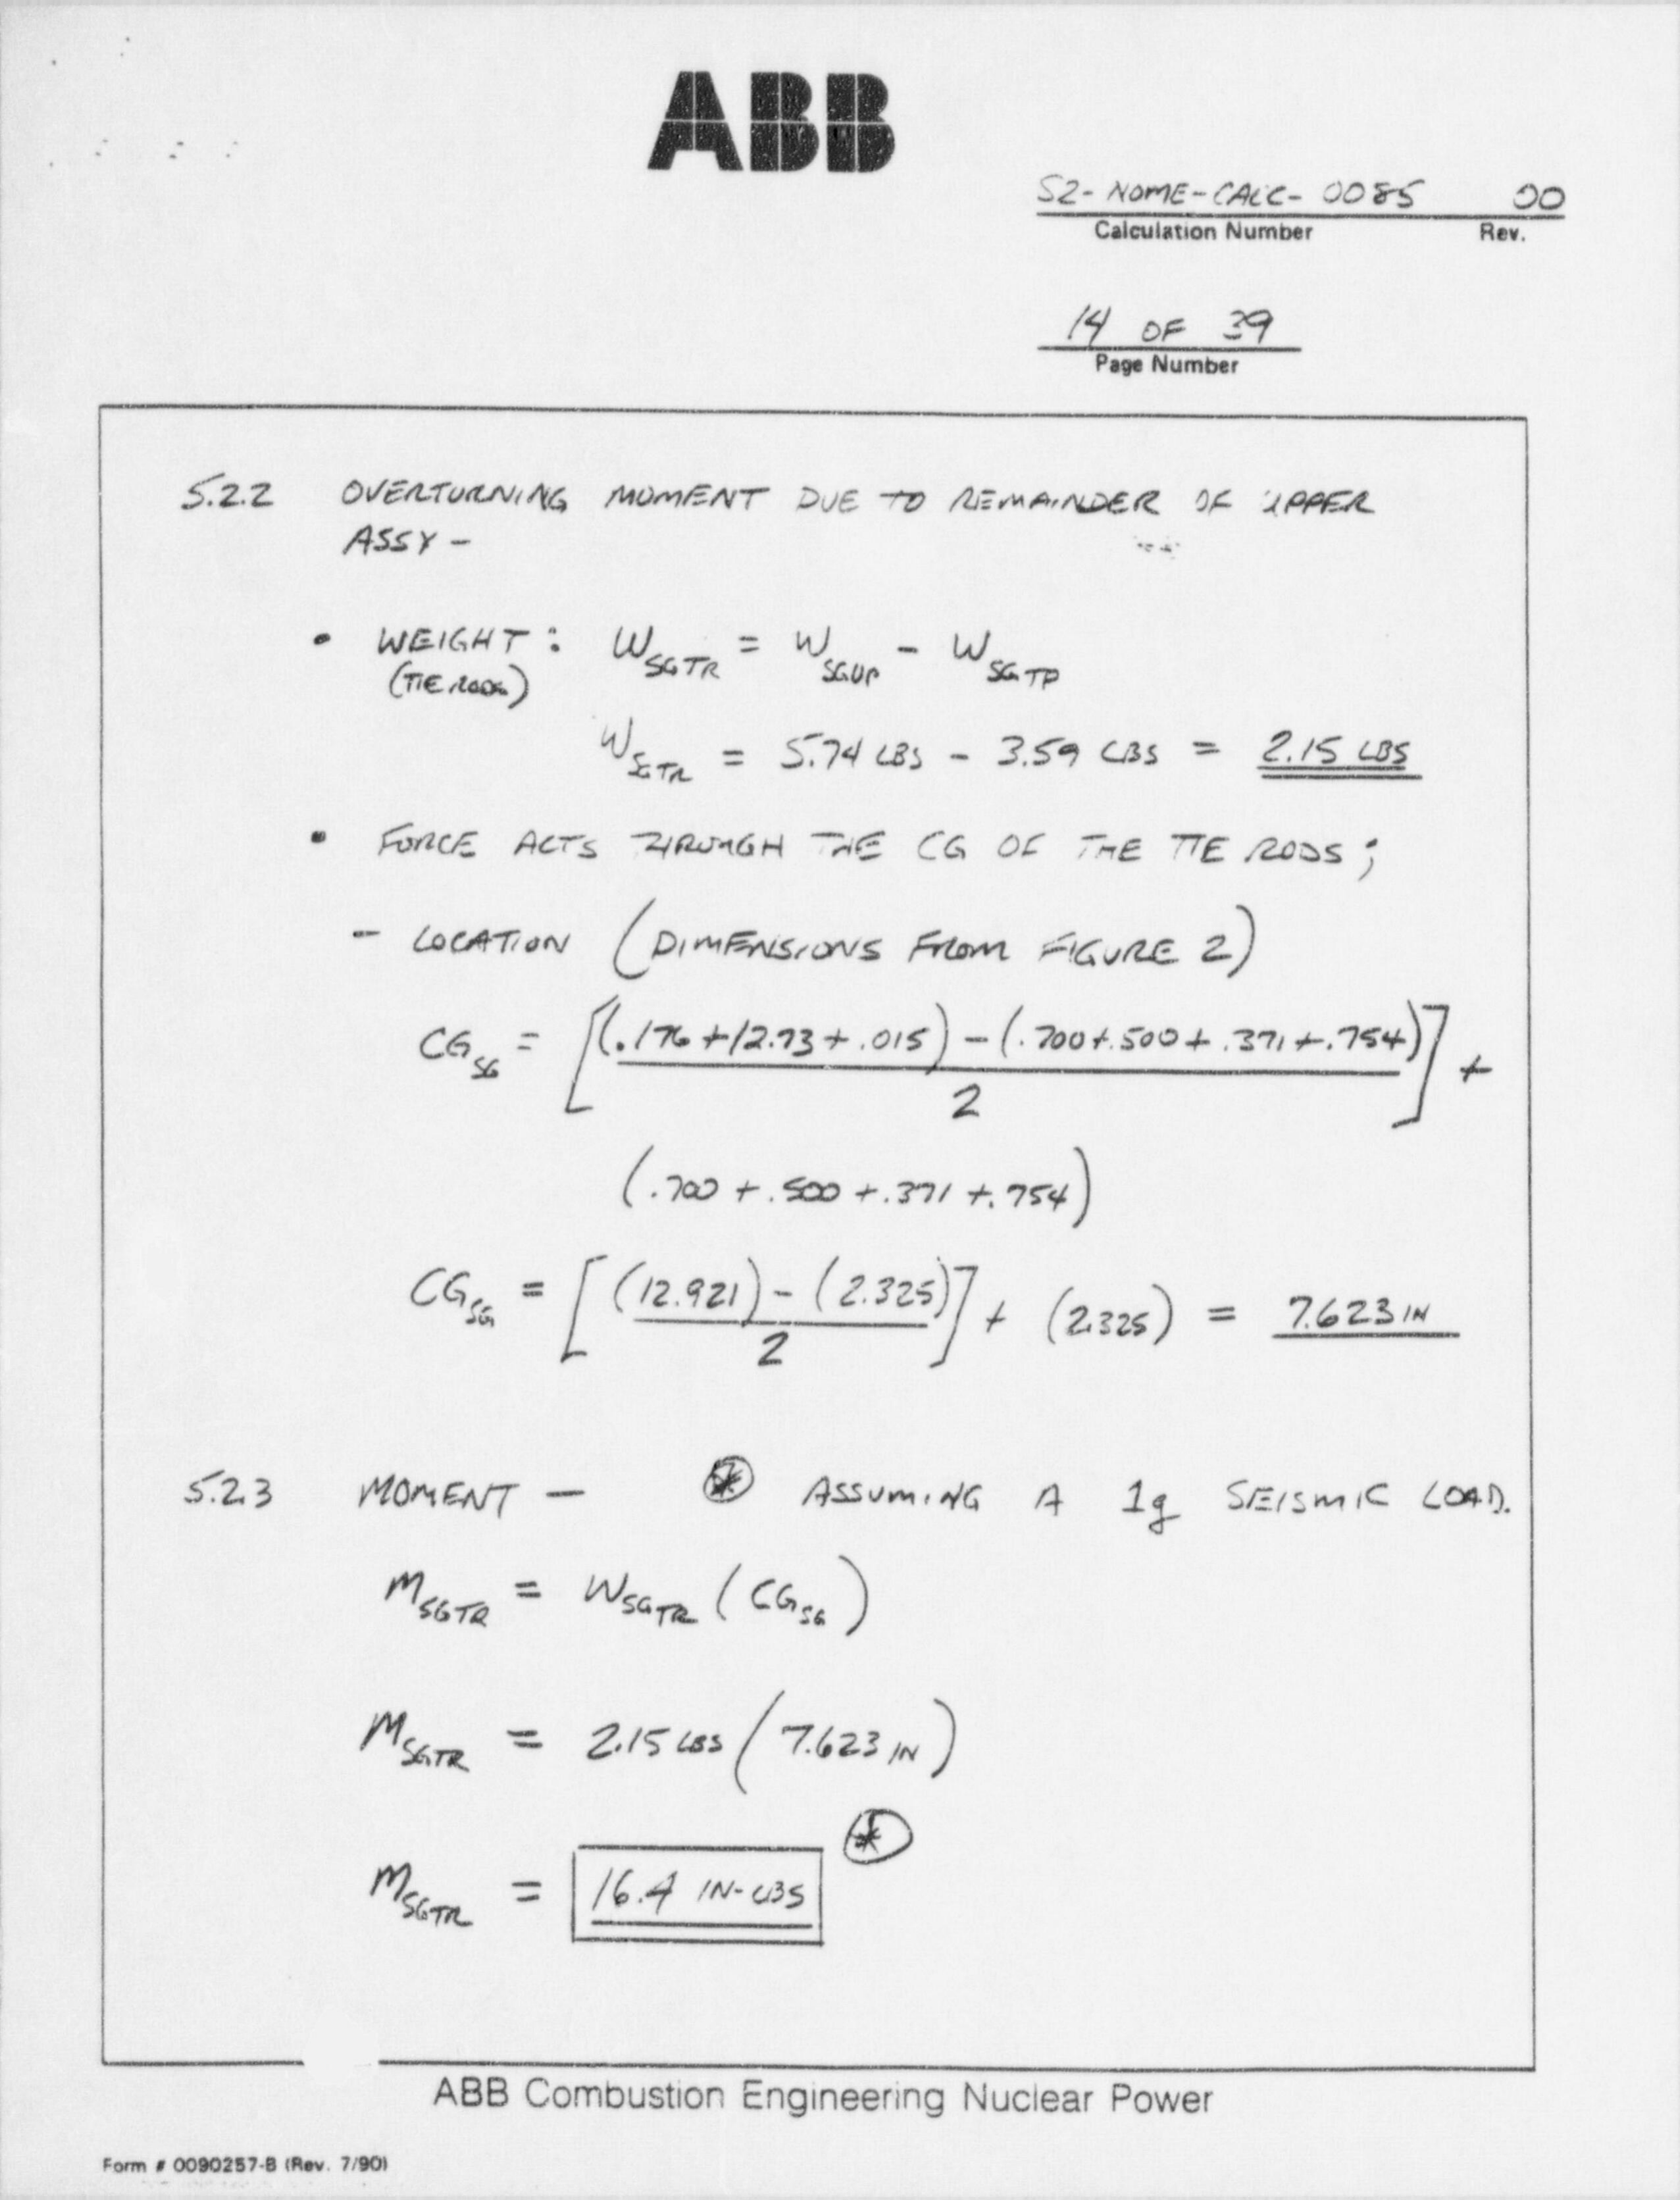 ABB
S2-NOME-CALC-0085 00
Calculation Number Rev.
14 OF 39
Page Number
5.2.2 OVERTURNING MOMENT DUE TO REMAINDER OF UPPER
ASSY -
• WEIGHT: W SGTR = W SGUP - W SGTP
(TIE RODS)
W SGTR = 5.74 LBS - 3.59 LBS = 2.15 LBS
• FORCE ACTS THROUGH THE CG OF THE TIE RODS;
- LOCATION (DIMENSIONS FROM FIGURE 2)
CG SG = [(.176+12.73+.015) - (.700+.500+.371+.754)] +
2
(.700 + .500 + .371 + .754)
CG SG = [(12.921) - (2.325)] + (2.325) = 7.623 IN
2
5.2.3 MOMENT - * ASSUMING A 1g SEISMIC LOAD.
M SGTR = W SGTR (CG SG)
M SGTR = 2.15 LBS (7.623 IN)
M SGTR = 16.4 IN-LBS *
ABB Combustion Engineering Nuclear Power
Form # 0090257-B (Rev. 7/90)